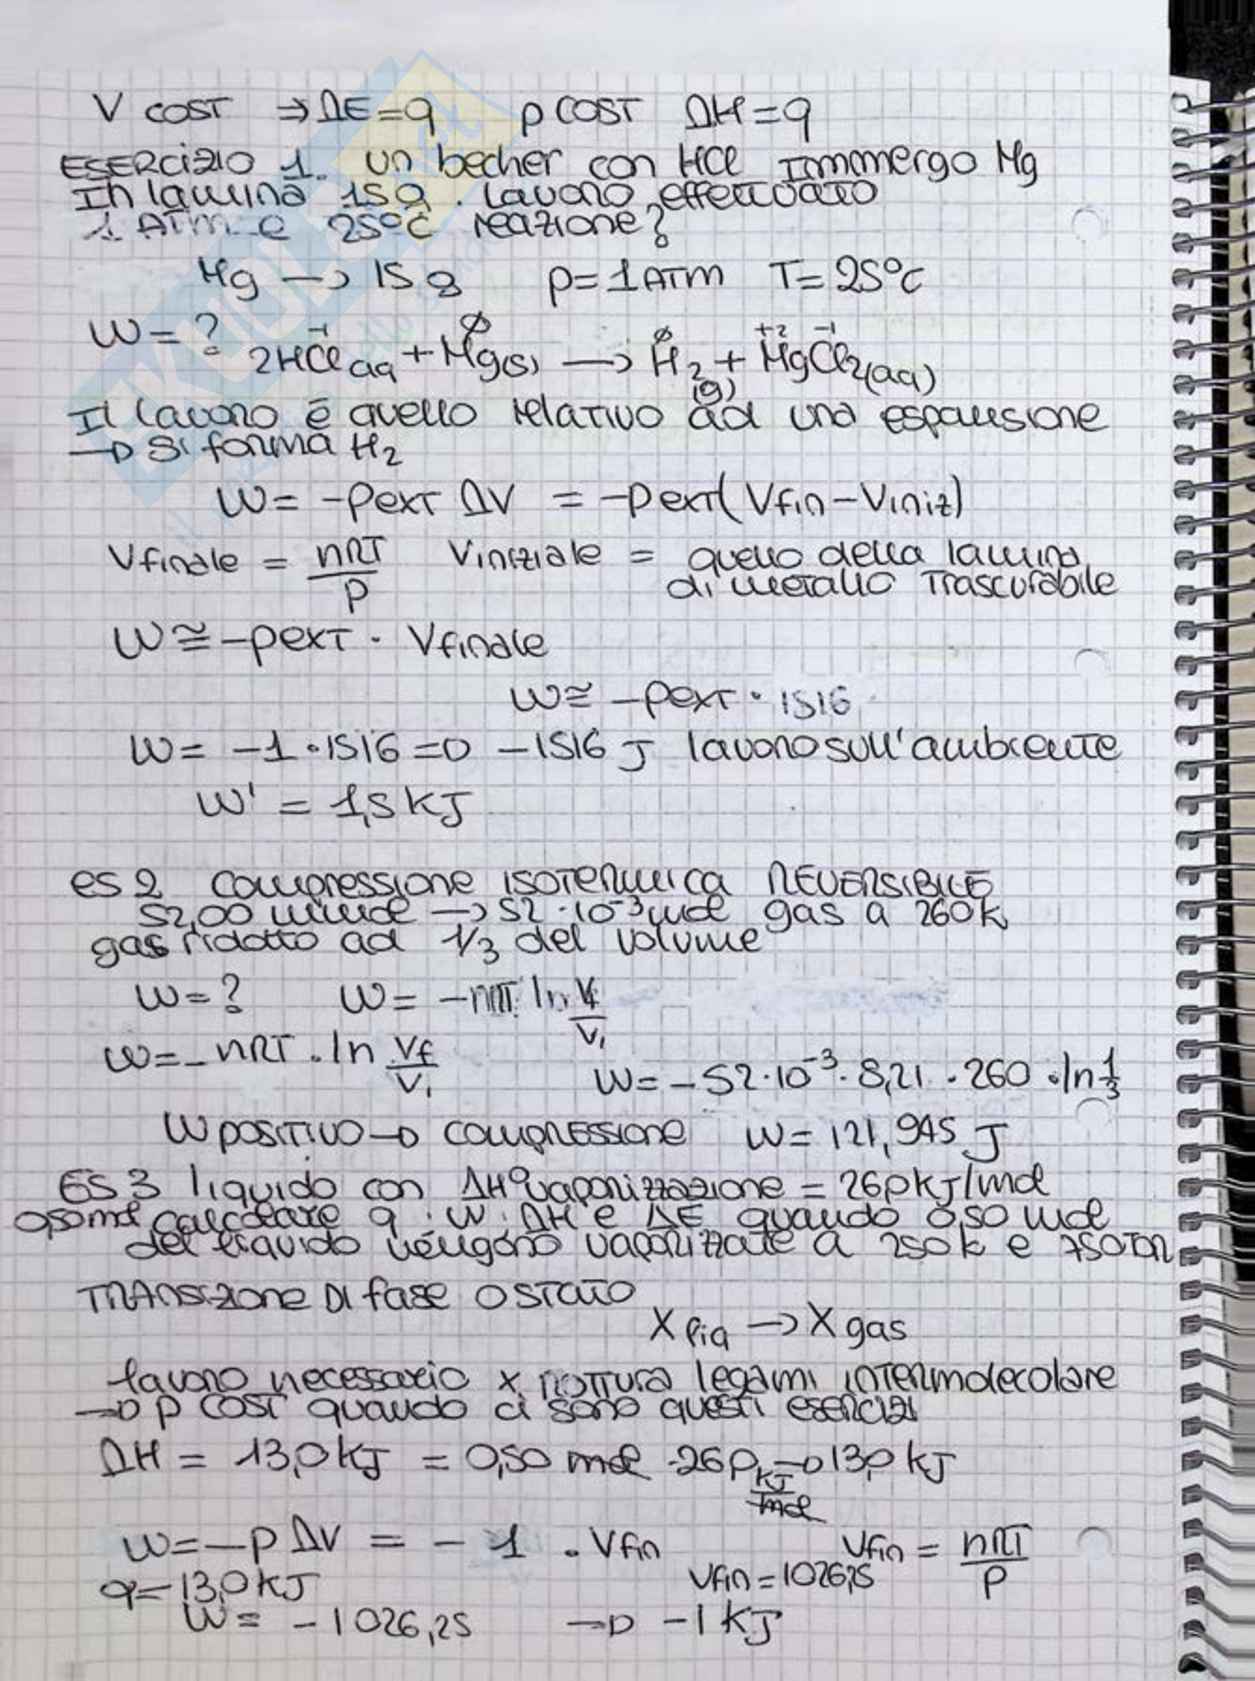 V COST ⇒ ΔE=q p COST ΔH=q
ESERCIZIO 1. un becher con HCl Immmergo Mg
In lamina 15g. lavoro effettuato
1 ATM e 25°C reazione?
Mg → 15 g p=1ATM T=25°C
W=?
-1 ∅ ∅ +2 -1
2HCl aq + Mg(s) → H2 (g) + MgCl2(aq)
Il lavoro è quello relativo ad una espansione
→ Si forma H2
W= -pext ΔV = -pext(Vfin-Viniz)
Vfinale = nRT/P Viniziale = quello della lamina
di metallo trascurabile
W≅-pext · Vfinale
W≅ -pext · 1516
W= -1·1516 → -1516 J lavoro sull'ambiente
W' = 1,5 KJ
es 2 compressione ISOTERMICA REVERSIBILE
52,00 mmol → 52·10⁻³mol gas a 260K
gas ridotto ad 1/3 del volume
W=? W= -nRT ln Vf/Vi
W=-nRT · ln Vf/Vi
W= -52·10⁻³·8,21·260·ln 1/3
W POSITIVO → compressione W=121,945 J
ES 3 liquido con ΔH°vaporizzazione = 26,0 kJ/mol
0,50 mol calcolare q, W, ΔH e ΔE quando 0,50 mol
del liquido vengono vaporizzate a 250K e 750TORR
TRANSIZIONE DI fase o STATO
X liq → X gas
lavoro necessario x rottura legami intermolecolare
→ p cost quando ci sono questi esercizi
ΔH = 13,0 KJ = 0,50 mol ·26,0 KJ/mol → 13,0 KJ
W=-p ΔV = - 1 · Vfin Vfin = nRT/P
q=13,0KJ Vfin=1026,25
W= -1026,25 → -1 KJ